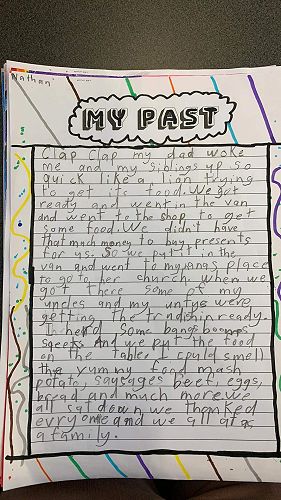 Nathan
MY PAST
Clap Clap my dad woke
me and my siblings up so
quick like a lion trying
to get its food. We got
ready and went in the van
and went to the shop to get
some food. We didn't have
that much money to buy presents
for us. So we put it in the
van and went to my nanas place
to go to her church. When we
got there some of my
uncles and my untys were
getting the ready.
I herd some bangs booms
sqeeks And we put the food
on the table, I could smell
the yummy food mash
potato, sausages beef, eggs,
bread and much more we
all sat down we thanked
evryone and we all at as
a family.